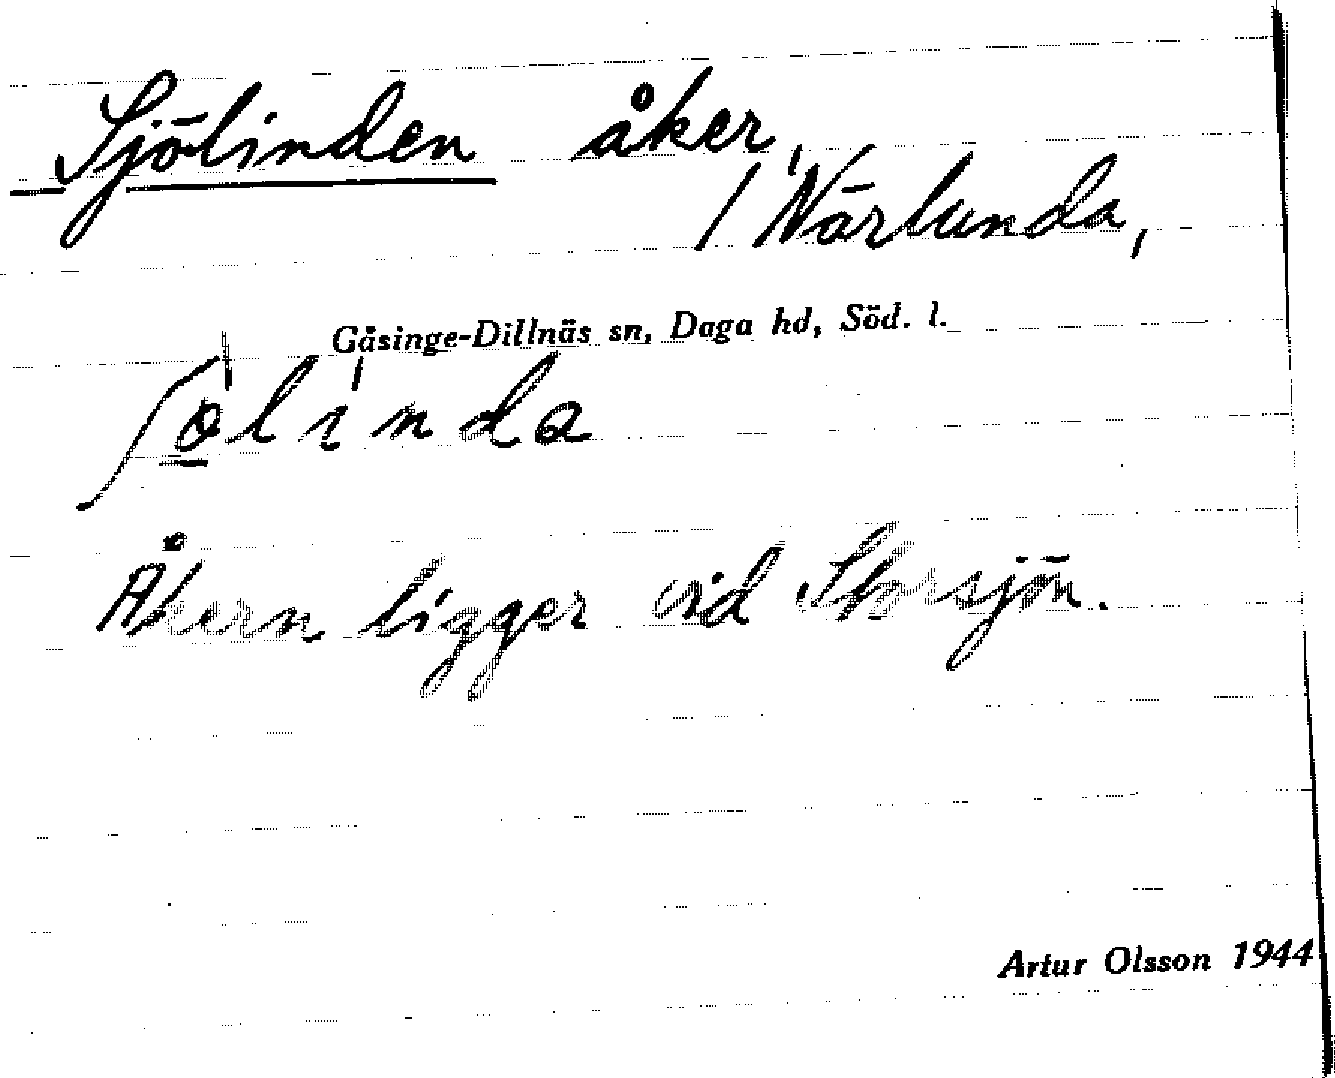 Sjölinden åker,
/ Närlunda,
Gåsinge-Dillnäs sn, Daga hd, Söd. l.
ʃo̲'li'nda
Åkern ligger vid Storsjön.
Artur Olsson 1944